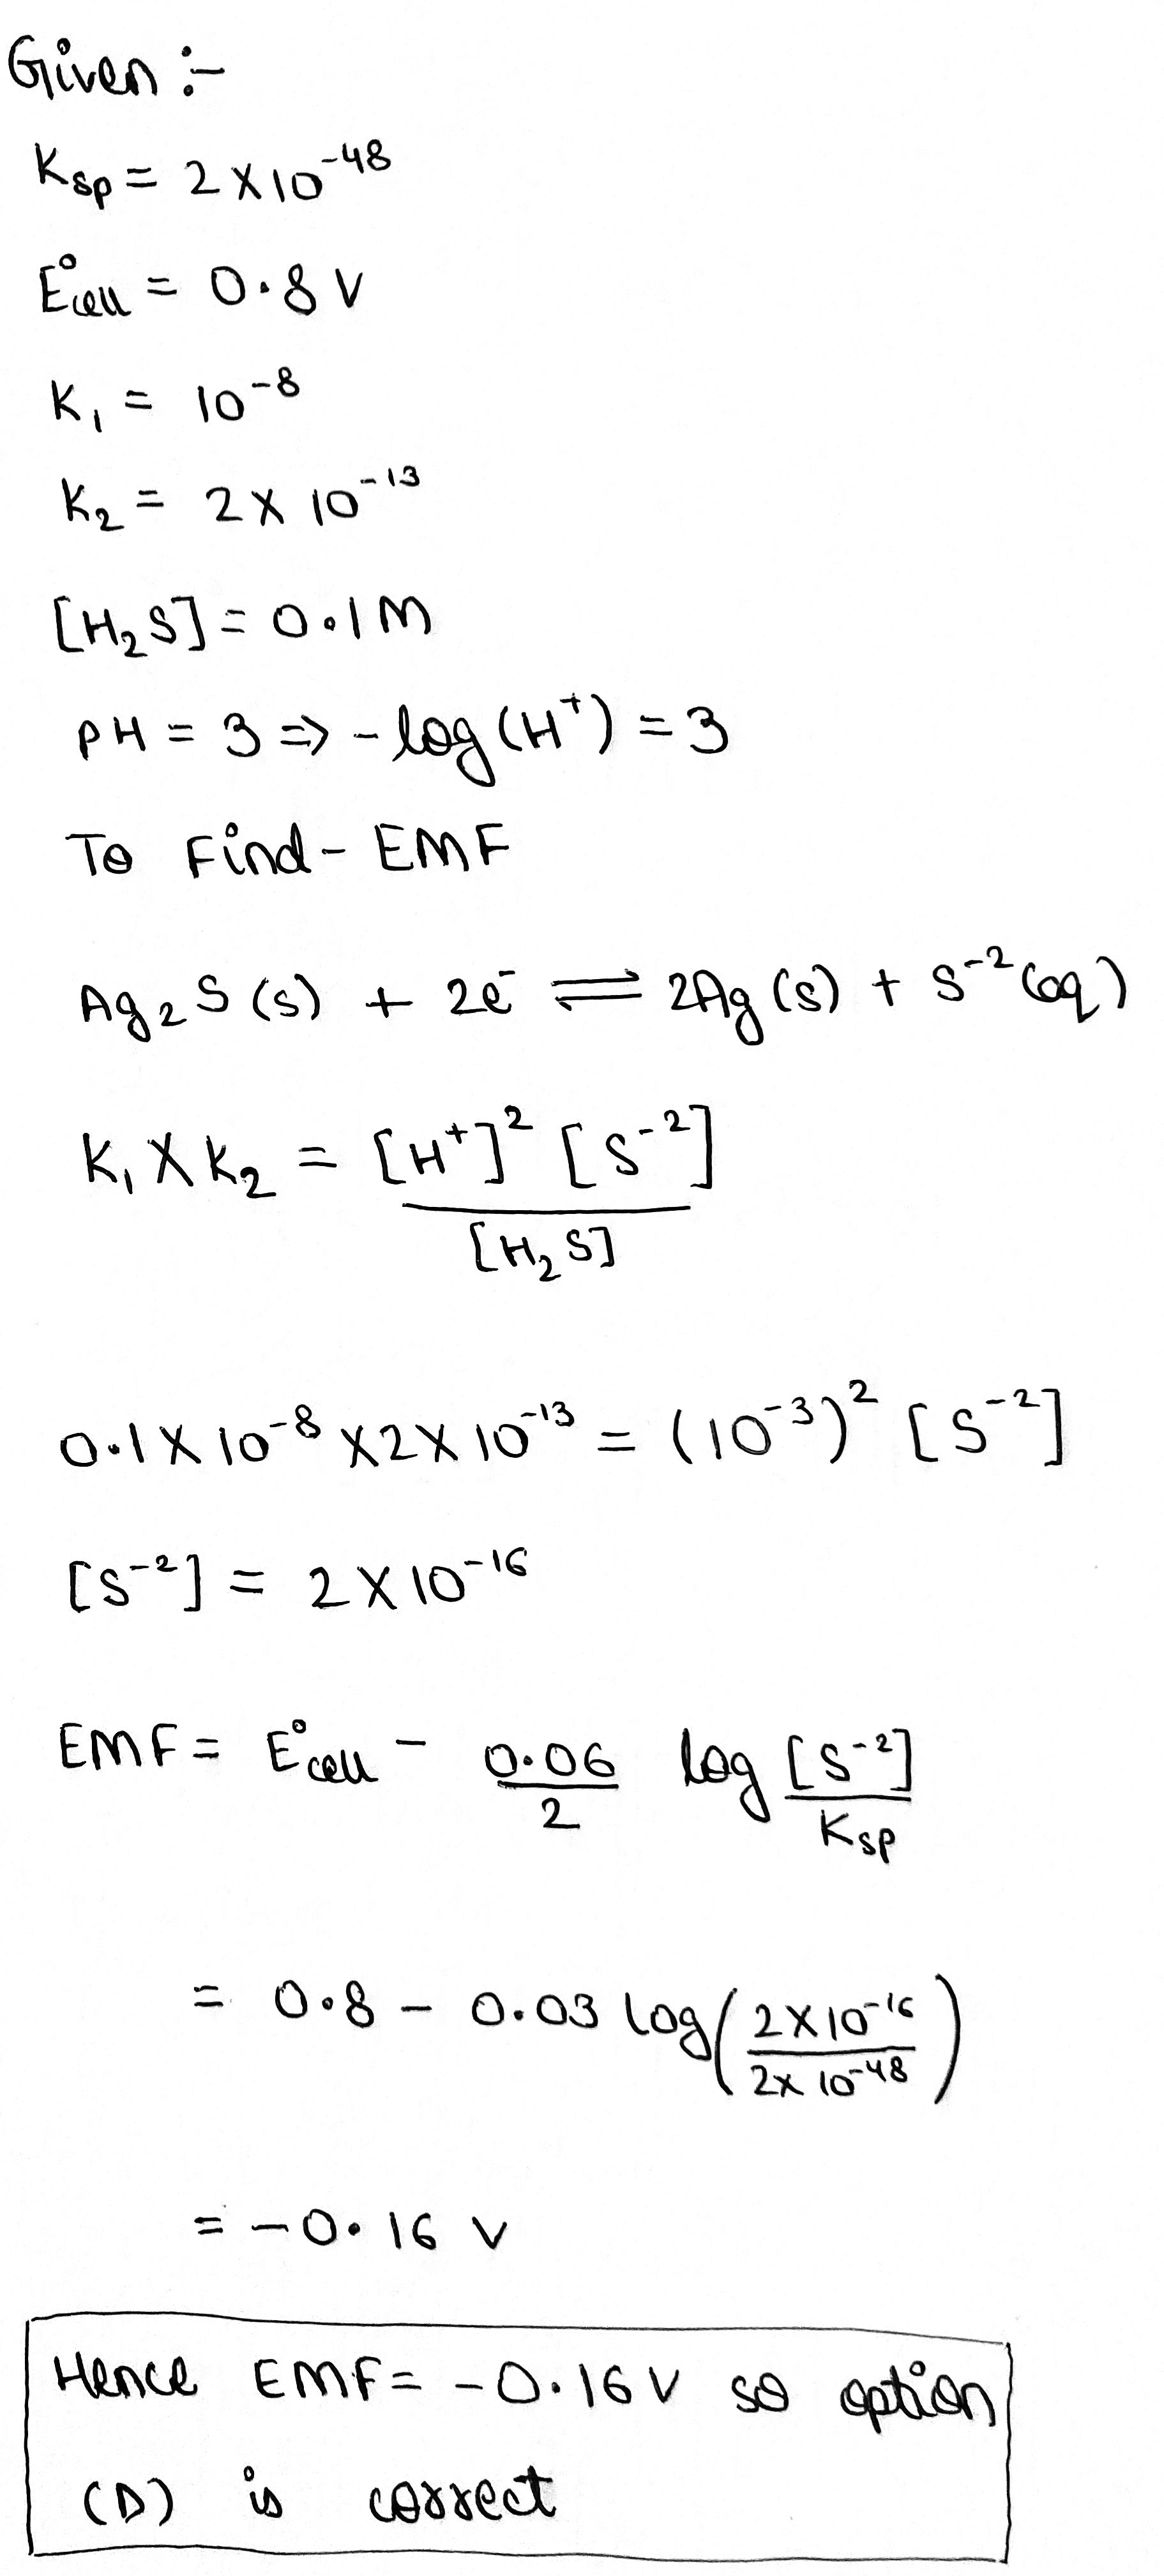 Given :-
Ksp = 2 X 10^-48
E°cell = 0.8 V
K₁ = 10^-8
K₂ = 2 X 10^-13
[H₂S] = 0.1 M
PH = 3 => - log (H⁺) = 3
To Find - EMF
Ag₂S (s) + 2e⁻ ⇌ 2Ag (s) + S^-2 (aq)
K₁ X K₂ = [H⁺]² [S^-2] / [H₂S]
0.1 X 10^-8 X 2 X 10^-13 = (10^-3)² [S^-2]
[S^-2] = 2 X 10^-16
EMF = E°cell - 0.06/2 log [S^-2]/Ksp
= 0.8 - 0.03 log (2 X 10^-16 / 2 x 10^-48)
= -0.16 V
Hence EMF = -0.16 V so option
(D) is correct